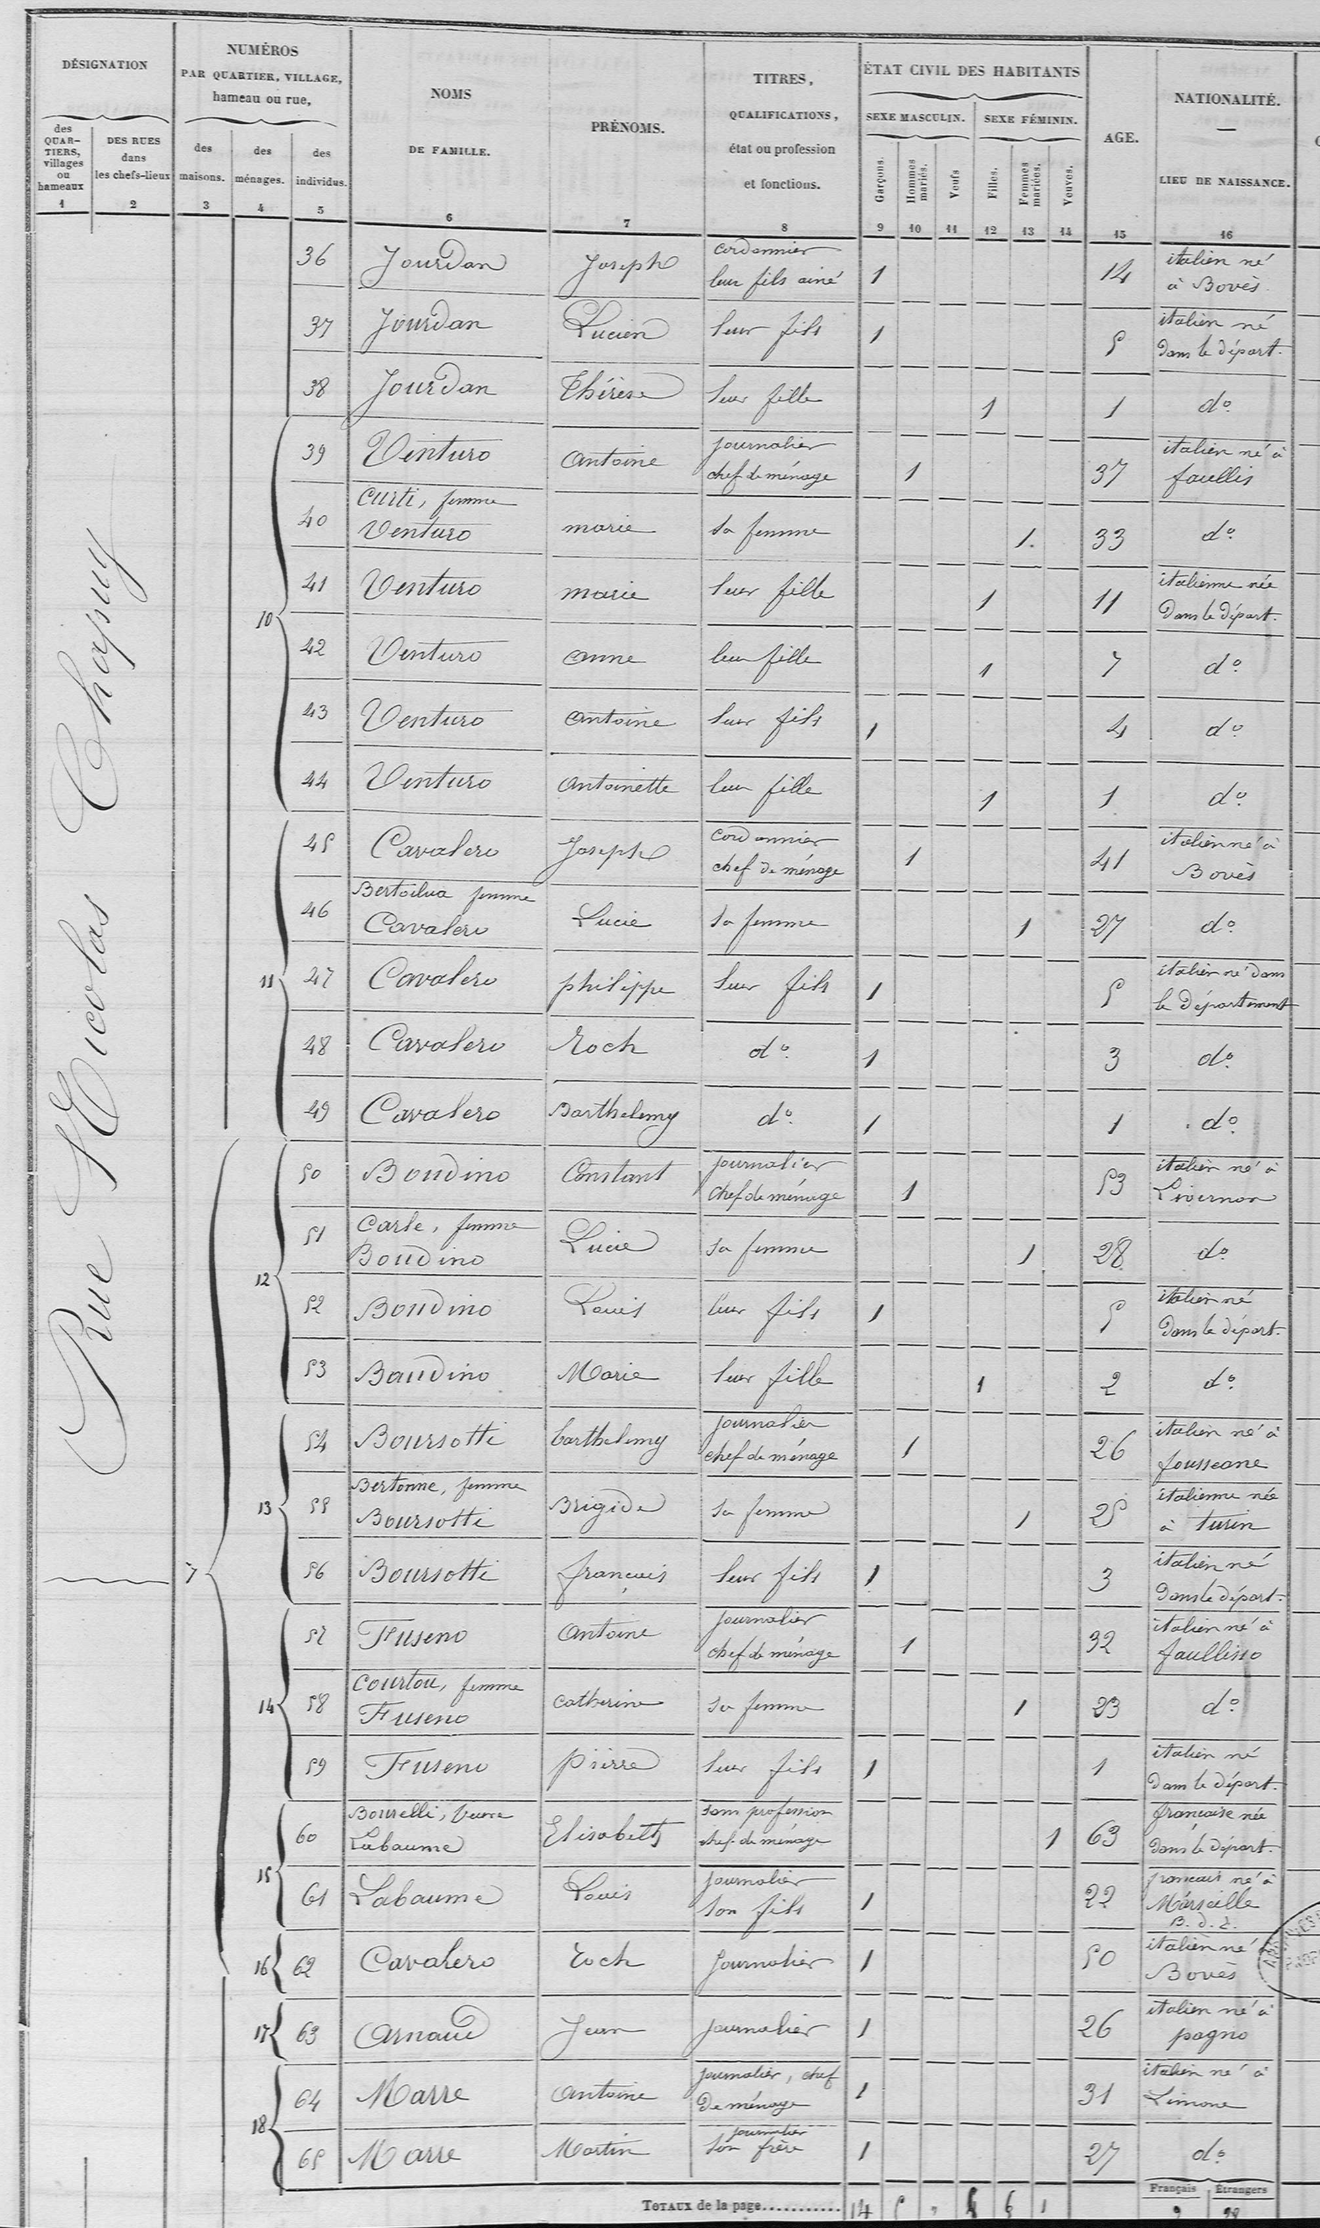 DÉSIGNATION
des QUARTIERS, villages ou hameaux
DES RUES dans les chefs-lieux
NUMÉROS
PAR QUARTIER, VILLAGE,
hameau ou rue,
des maisons.
des ménages.
des individus.
NOMS
DE FAMILLE.
PRÉNOMS.
TITRES,
QUALIFICATIONS,
état ou profession
et fonctions.
ÉTAT CIVIL DES HABITANTS
SEXE MASCULIN.
SEXE FÉMININ.
Garçons.
Hommes mariés.
Veufs
Filles.
Femmes mariées.
Veuves.
AGE.
NATIONALITÉ.
—
LIEU DE NAISSANCE.
1 2 3 4 5 6 7 8 9 10 11 12 13 14 15 16
Rue Nicolas Chapuy
36 Jourdan Joseph cordonnier leur fils ainé 1 14 italien né à Bovès
37 Jourdan Lucien leur fils 1 5 italien né dans le départ.
38 Jourdan Thérèse leur fille 1 1 do
10
39 Venturo Antoine journalier chef de ménage 1 37 italien né à
40 Curti, femme Venturo marie sa femme 1 33 do
41 Venturo marie leur fille 1 11 italienne née dans le départ.
42 Venturo anne leur fille 1 7 do
43 Venturo antoine leur fils 1 4 do
44 Venturo antoinette leur fille 1 1 do
11
45 Cavalero Joseph cordonnier chef de ménage 1 41 italien né à Bovès
46 femme Cavalero Lucie sa femme 1 27 do
47 Cavalero philippe leur fils 1 5 italien né dans le département
48 Cavalero Roch do 1 3 do
49 Cavalero Barthelemy do 1 1 do
7
12
50 Boudino Constant journalier chef de ménage 1 53 italien né à Livernon
51 Carle, femme Boudino Lucie sa femme 1 28 do
52 Boudino Louis leur fils 1 5 italien né dans le départ.
53 Baudino Marie leur fille 1 2 do
13
54 Boursotti barthelemy journalier chef de ménage 1 26 italien né à fousseane
55 Bertonne, femme Boursotti Brigide sa femme 1 25 italienne née à turin
56 Boursotti françois leur fils 1 3 italien né dans le départ.
14
57 Fuseno Antoine journalier chef de ménage 1 32 italien né à faullisso
58 Courtou, femme Fuseno catherine sa femme 1 23 do
59 Fuseno pierre leur fils 1 1 italien né dans le départ.
15
60 Bourelli, veuve Labaume Elisabeth sans profession chef de ménage 1 63 française née dans le départ.
61 Labaume Louis journalier son fils 1 22 francais né à Marseille B. d. R.
16 62 Cavalero roch journalier 1 50 italien né Bovès
17 63 Arnaud Jean journalier 1 26 italien né à pagno
18
64 Marre Antoine journalier, chef de ménage 1 31 italien né à Limone
65 Marre Martin journalier son frère 1 27 do
TOTAUX de la page 14
Français Étrangers
2 28